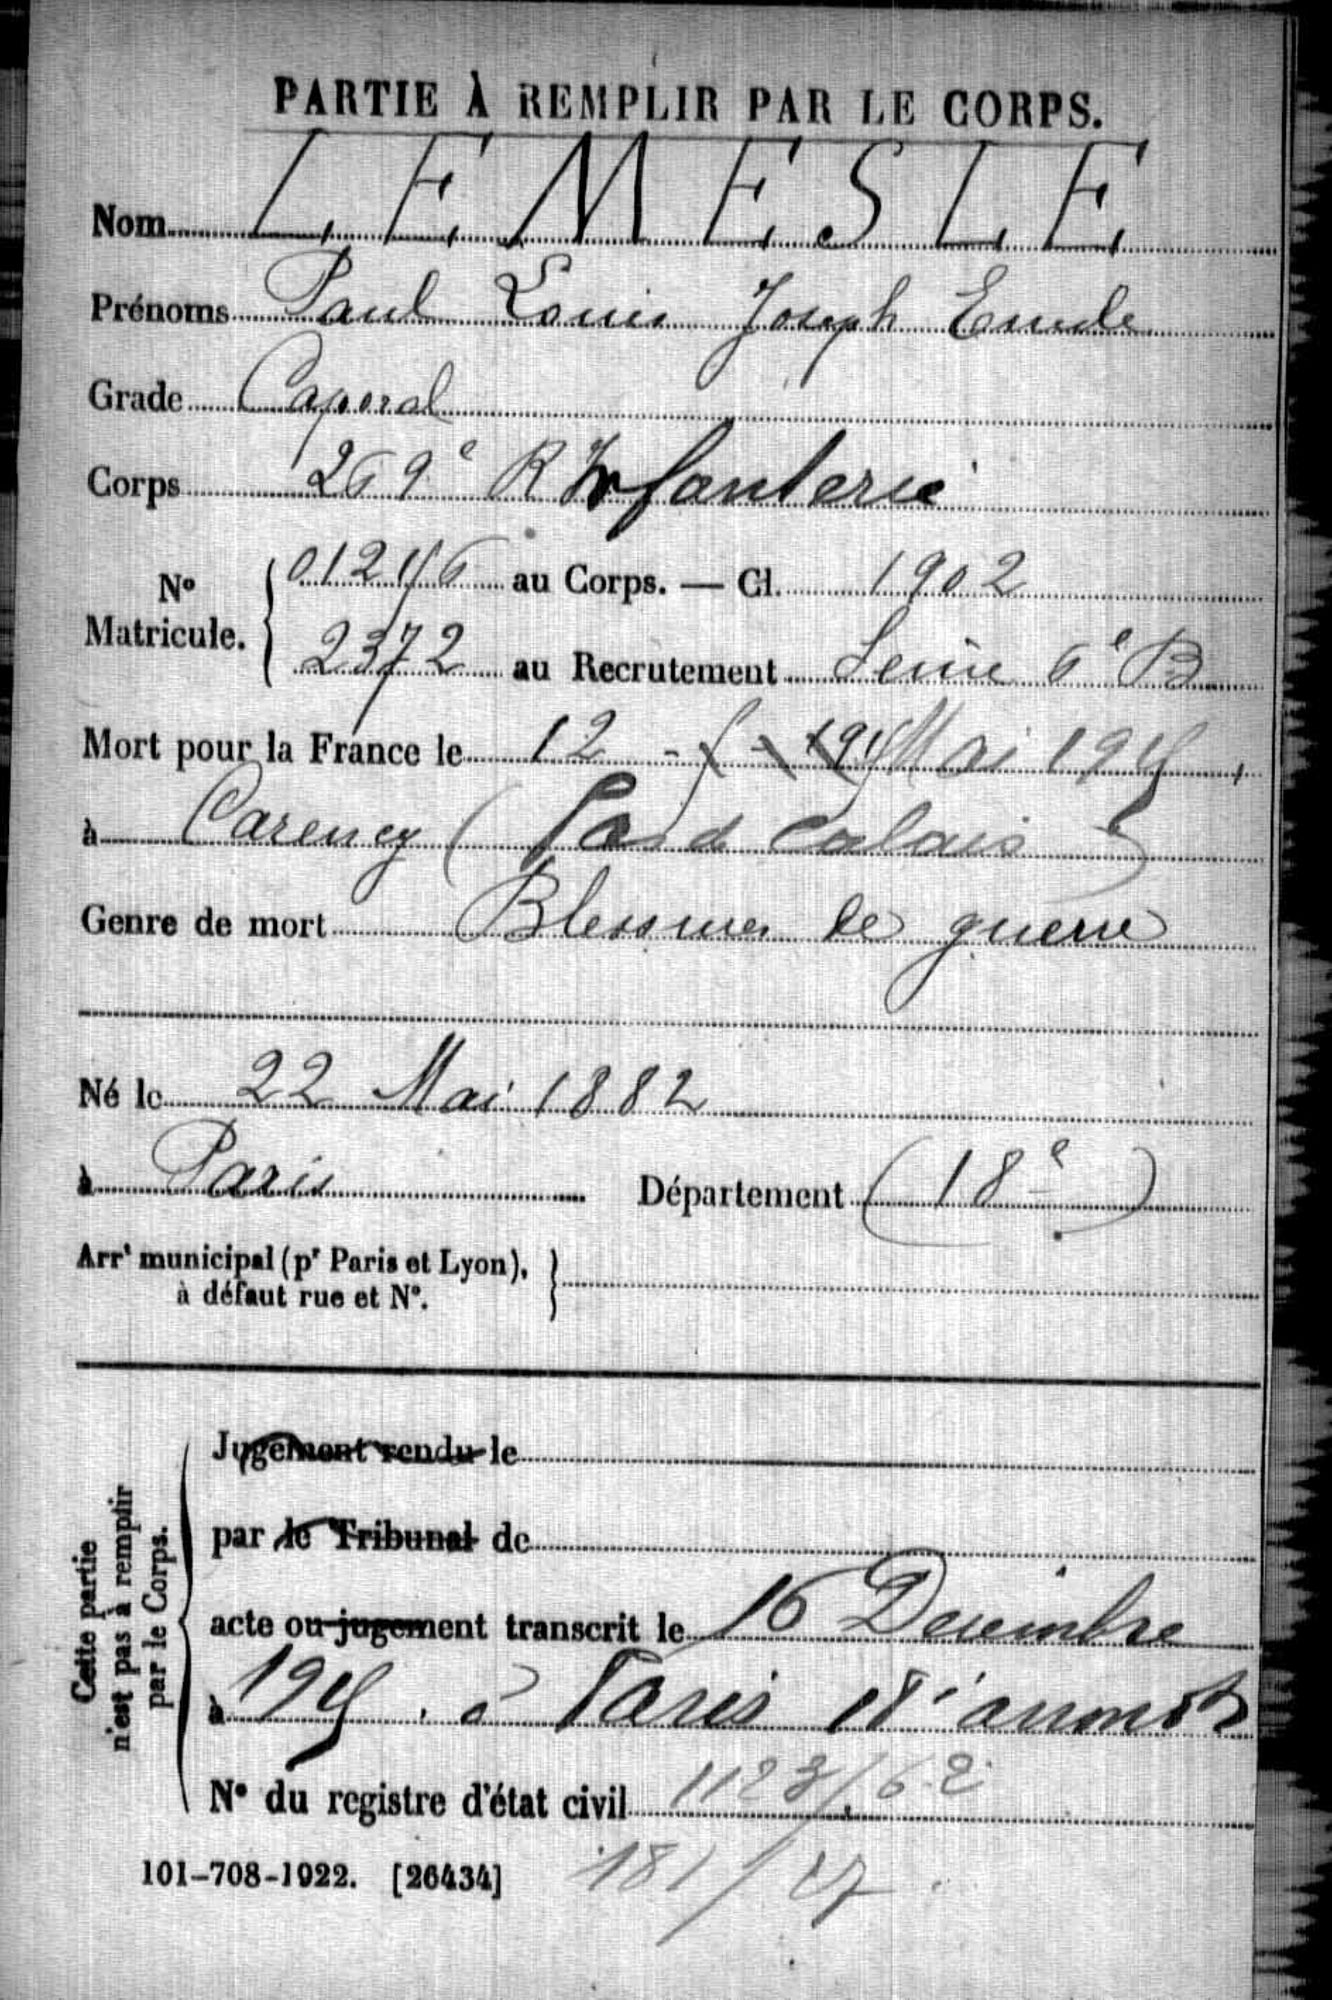 PARTIE À REMPLIR PAR LE CORPS.
Nom LEMESLE
Prénoms Paul Louis Joseph Emile
Grade Caporal
Corps 269e R Infanterie
No Matricule. 
01246 au Corps. — Cl. 1902
2372 au Recrutement Seine 6e B
Mort pour la France le 12 Mai 1915
à Carency (Pas de Calais)
Genre de mort Blessures de guerre
Né le 22 Mai 1882
à Paris Département (18e)
Arrt municipal (pr Paris et Lyon),
à défaut rue et No.
Cette partie
n'est pas à remplir
par le Corps.
Jugement rendu le
par le Tribunal de
acte ou jugement transcrit le 16 Décembre
à 1915. à Paris 18e arrondt
No du registre d'état civil 1123/62
101-708-1922. [26434]